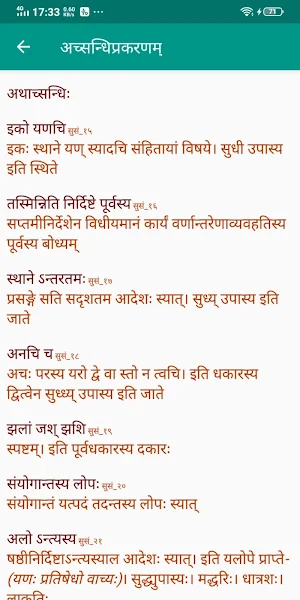 4G 17:33 0.60 KB/s ··· 71
अच्सन्धिप्रकरणम्
अथाच्सन्धिः
इको यणचि सुसं_१५
इकः स्थाने यण् स्यादचि संहितायां विषये। सुधी उपास्य
इति स्थिते
तस्मिन्निति निर्दिष्टे पूर्वस्य सुसं_१६
सप्तमीनिर्देशेन विधीयमानं कार्यं वर्णान्तरेणाव्यवहतिस्य
पूर्वस्य बोध्यम्
स्थाने ऽन्तरतमः सुसं_१७
प्रसङ्गे सति सदृशतम आदेशः स्यात्। सुध्य् उपास्य इति
जाते
अनचि च सुसं_१८
अचः परस्य यरो द्वे वा स्तो न त्वचि। इति धकारस्य
द्वित्वेन सुध्ध्य् उपास्य इति जाते
झलां जश् झशि सुसं_१९
स्पष्टम्। इति पूर्वधकारस्य दकारः
संयोगान्तस्य लोपः सुसं_२०
संयोगान्तं यत्पदं तदन्तस्य लोपः स्यात्
अलो ऽन्त्यस्य सुसं_२१
षष्ठीनिर्दिष्टाऽन्त्यस्याल आदेशः स्यात्। इति यलोपे प्राप्ते-
(यणः प्रतिषेधो वाच्यः)। सुद्ध्युपास्यः। मद्धरिः। धात्रशः।
लाकृतिः